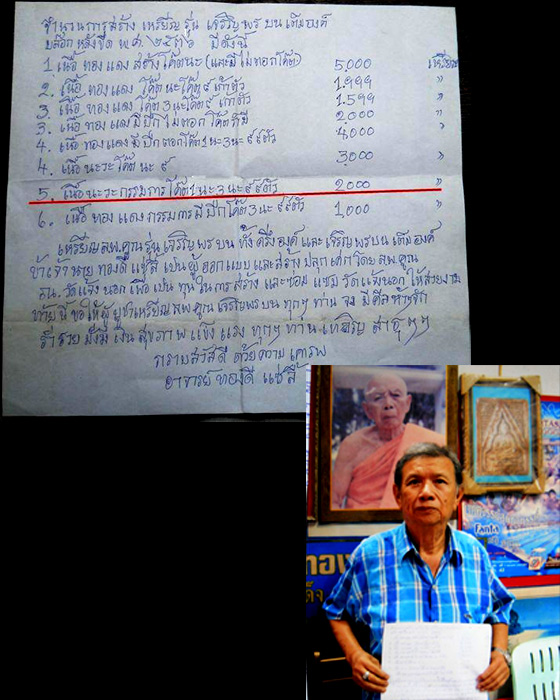 จำนวนการสร้าง เหรียญ รุ่น เจริญพร บน เต็มองค์
บล็อก หลังขีด พ.ศ. ๒๕๓๖ มีดังนี้
1. เนื้อ ทองแดง สร้างโค๊ตนะ (และมีไม่ตอกโค๊ต) 5,000 เหรียญ
2. เนื้อ ทองแดง โค๊ต นะ โค๊ต ๙ เก้าตัว 1,999 "
3. เนื้อ ทองแดง โค๊ต 3 นะ โค๊ต ๙ เก้าตัว 1,599 "
3. เนื้อ ทองแดง มีปีก ไม่ตอก โค๊ต ก็มี 2,000 "
4. เนื้อ ทองแดง มีปีก ตอกโค๊ต 1 นะ 3 นะ ๙ ๙ ตัว 4,000 "
4. เนื้อ นะวะ โค๊ต นะ ๙ 3,000 "
5. เนื้อ นะวะ กรรมการ โค๊ต 1 นะ 3 นะ ๙ ๙ ตัว 2,000 "
6. เนื้อ ทองแดง กรรมการ มีปีก โค๊ต 3 นะ ๙ ๙ ตัว 1,000 "
เหรียญ ลพ.คูณ รุ่น เจริญพร บน ทั้ง ครึ่งองค์ และ เจริญพร บน เต็มองค์
ข้าเจ้า นาย ทองดี แซ่ลี้ เป็นผู้ ออกแบบ และสร้าง ปลุกเสกโดย ลพ.คูณ
ณ. วัดแจ้งนอก เพื่อ เป็น ทุน ในการ สร้าง และซ่อม แซม วัดแจ้งนอก ให้สวยงาม
ท้ายนี้ ขอให้ผู้ บูชาเหรียญ ลพ.คูณ เจริญพรบน ทุกๆ ท่าน จง มี
ร่ำรวย มั่งมี เงิน สุขภาพ แข็งแรง ทุกๆ ท่าน เทอญ สาธุๆๆ
กราบสวัสดี ด้วยความ เคารพ
อาจารย์ ทองดี แซ่ลี้
Fanta
ทอง